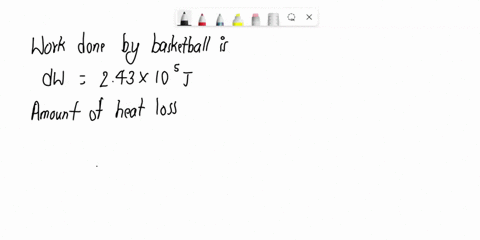 Work done by basketball is
dW = 2.43 × 10⁵ J
Amount of heat loss